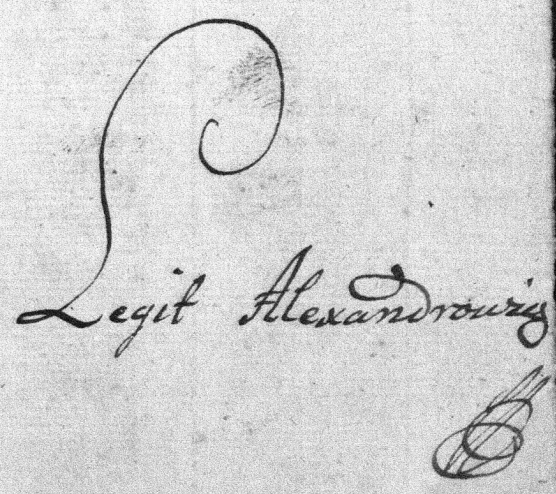 Legit Alexandrowicz